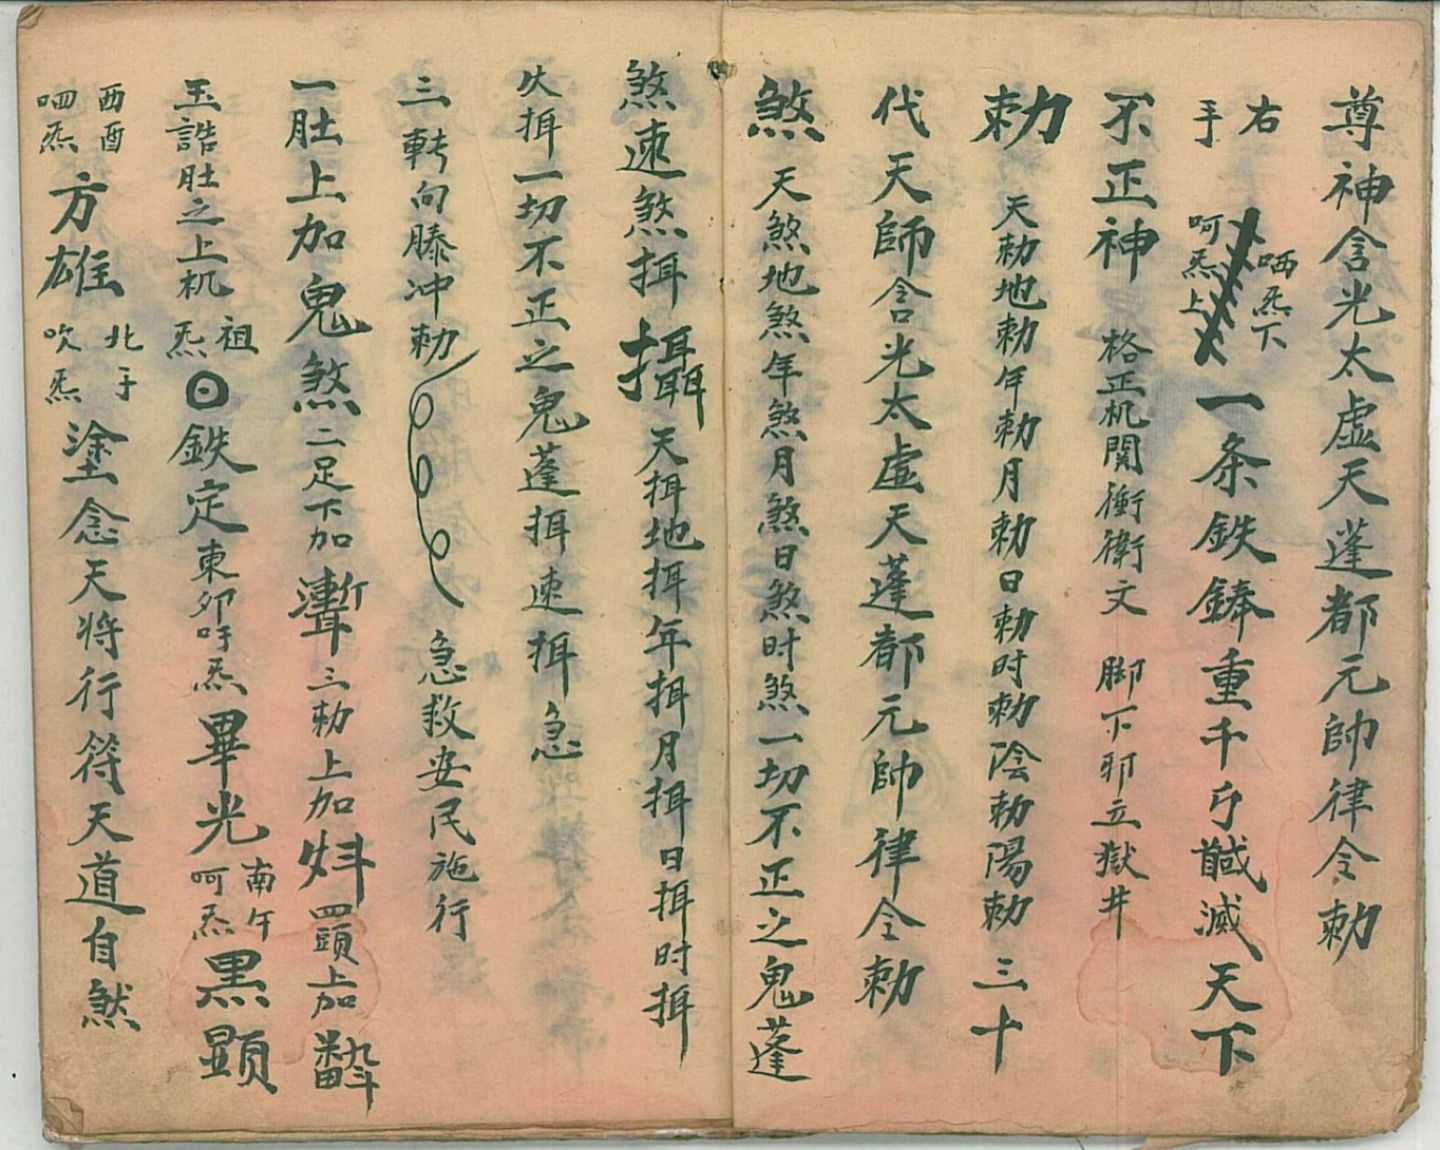 尊神含光太虚天蓬都元帥律令勅
右手 哂炁下 呵炁上 一条鉄鋒重千斤馘滅天下
不正神 格正机関衝衛文 脚下邪立獄井
勅 天勅地勅年勅月勅日勅时勅陰勅陽勅三十
代天師含光太虚天蓬都元帥律令勅
煞 天煞地煞年煞月煞日煞时煞一切不正之鬼蓬
煞速煞揖攝天揖地揖年揖月揖日揖时揖
揖一切不正之鬼蓬揖速揖急
三轉向滕冲勅 急救安民施行
一肚上加鬼煞二足下加魙三勅上加 四頭上加
玉誥肚之上机 祖炁 鉄定 東卯吁炁 畢光 南午呵炁 黒顕
西酉哂炁 方雄 北子吹炁 塗念天将行符天道自然